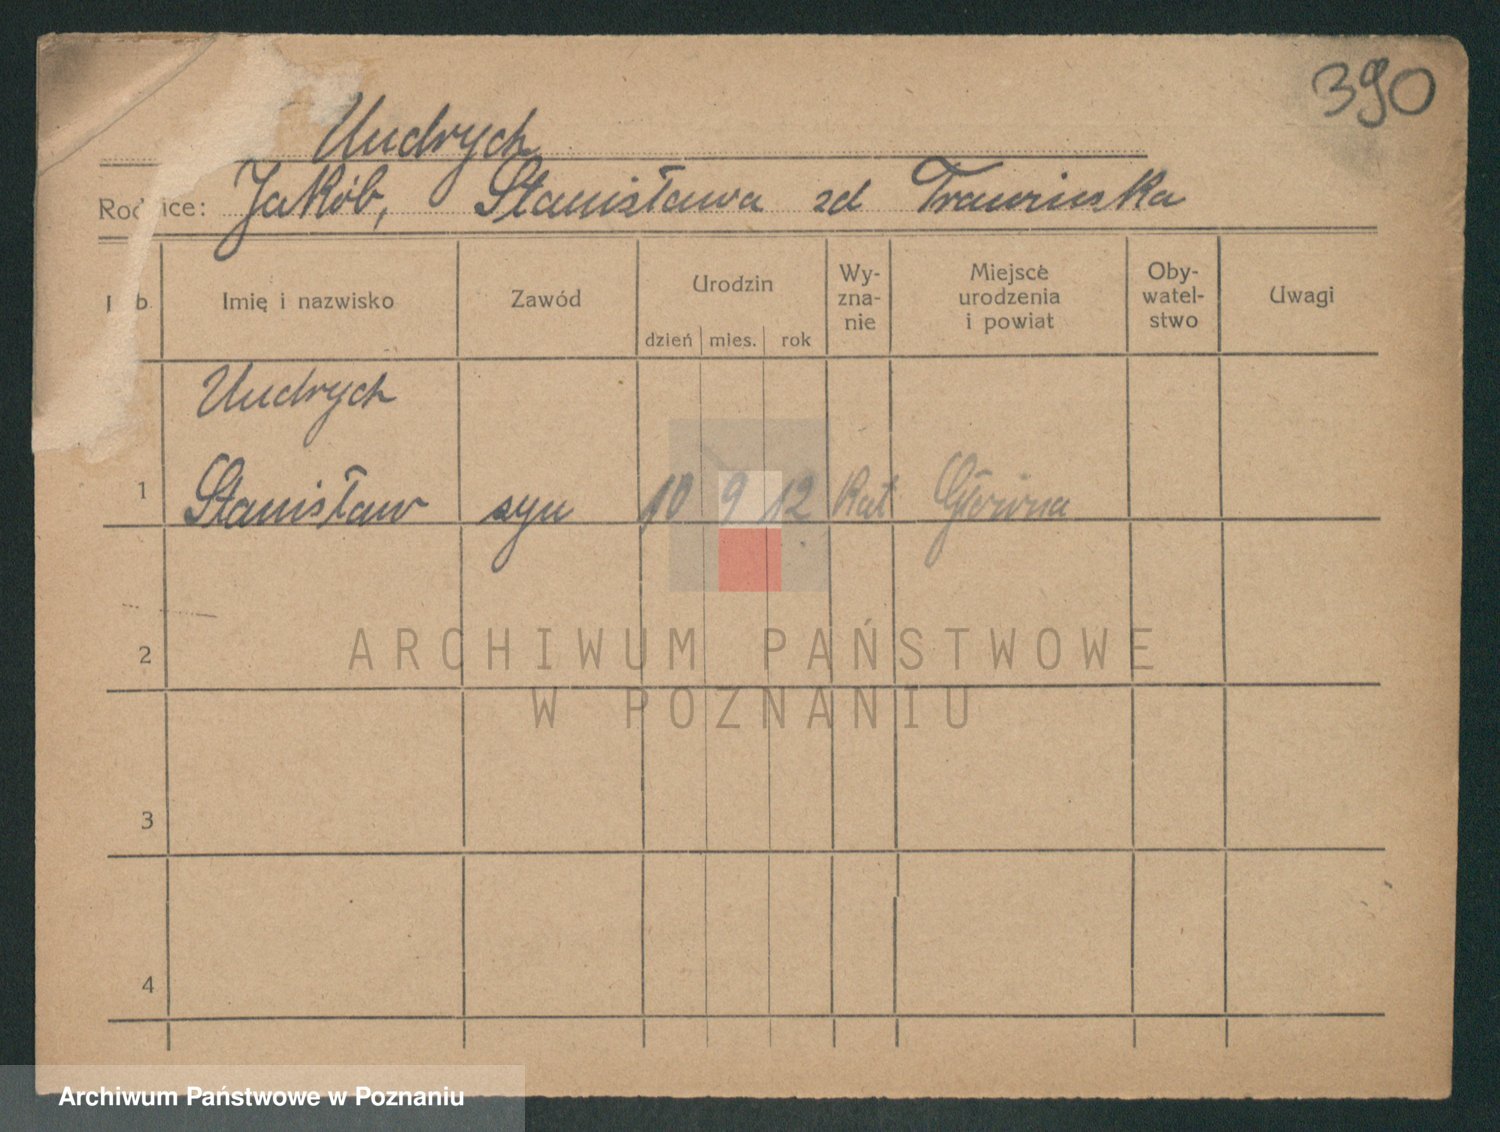 390
Undrych
Rodzice: Jakób, Stanisława zd
L b. Imię i nazwisko Zawód Urodzin dzień mies. rok Wy-zna-nie Miejsce urodzenia i powiat Oby-watel-stwo Uwagi
Undrych
1 Stanisław syn 10 9 12 Kat Główna
2
ARCHIWUM PAŃSTWOWE
W POZNANIU
3
4
Archiwum Państwowe w Poznaniu